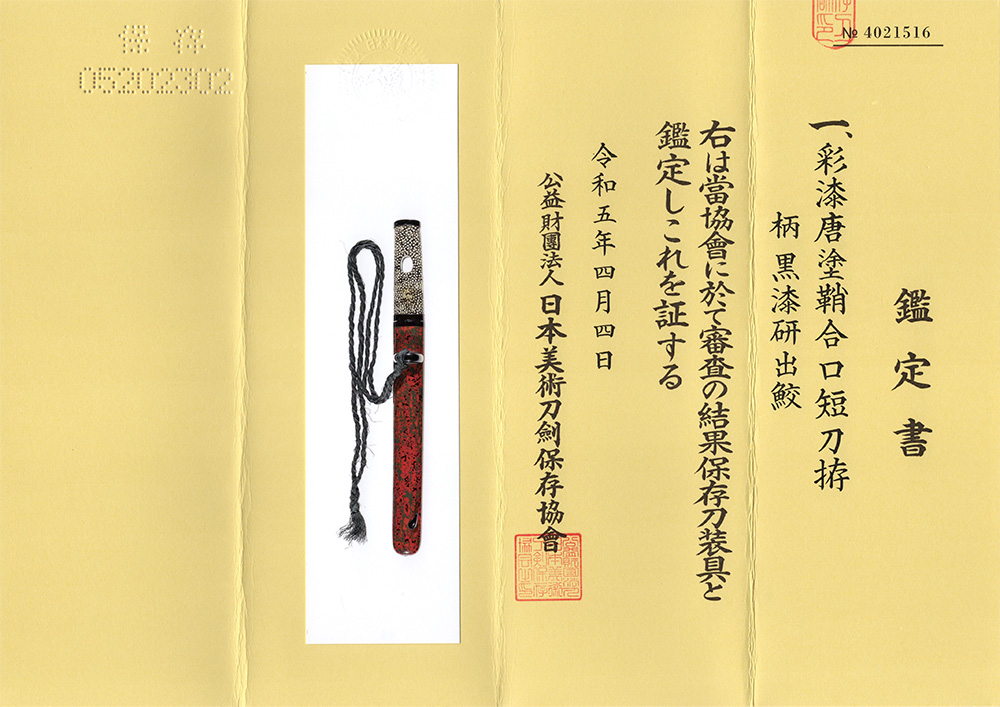 № 4021516
鑑定書
一、彩漆唐塗鞘合口短刀拵
柄 黒漆研出鮫
右は當協會に於て審査の結果保存刀装具と
鑑定しこれを証する
令和五年四月四日
公益財團法人 日本美術刀劍保存協會
保存
05202302